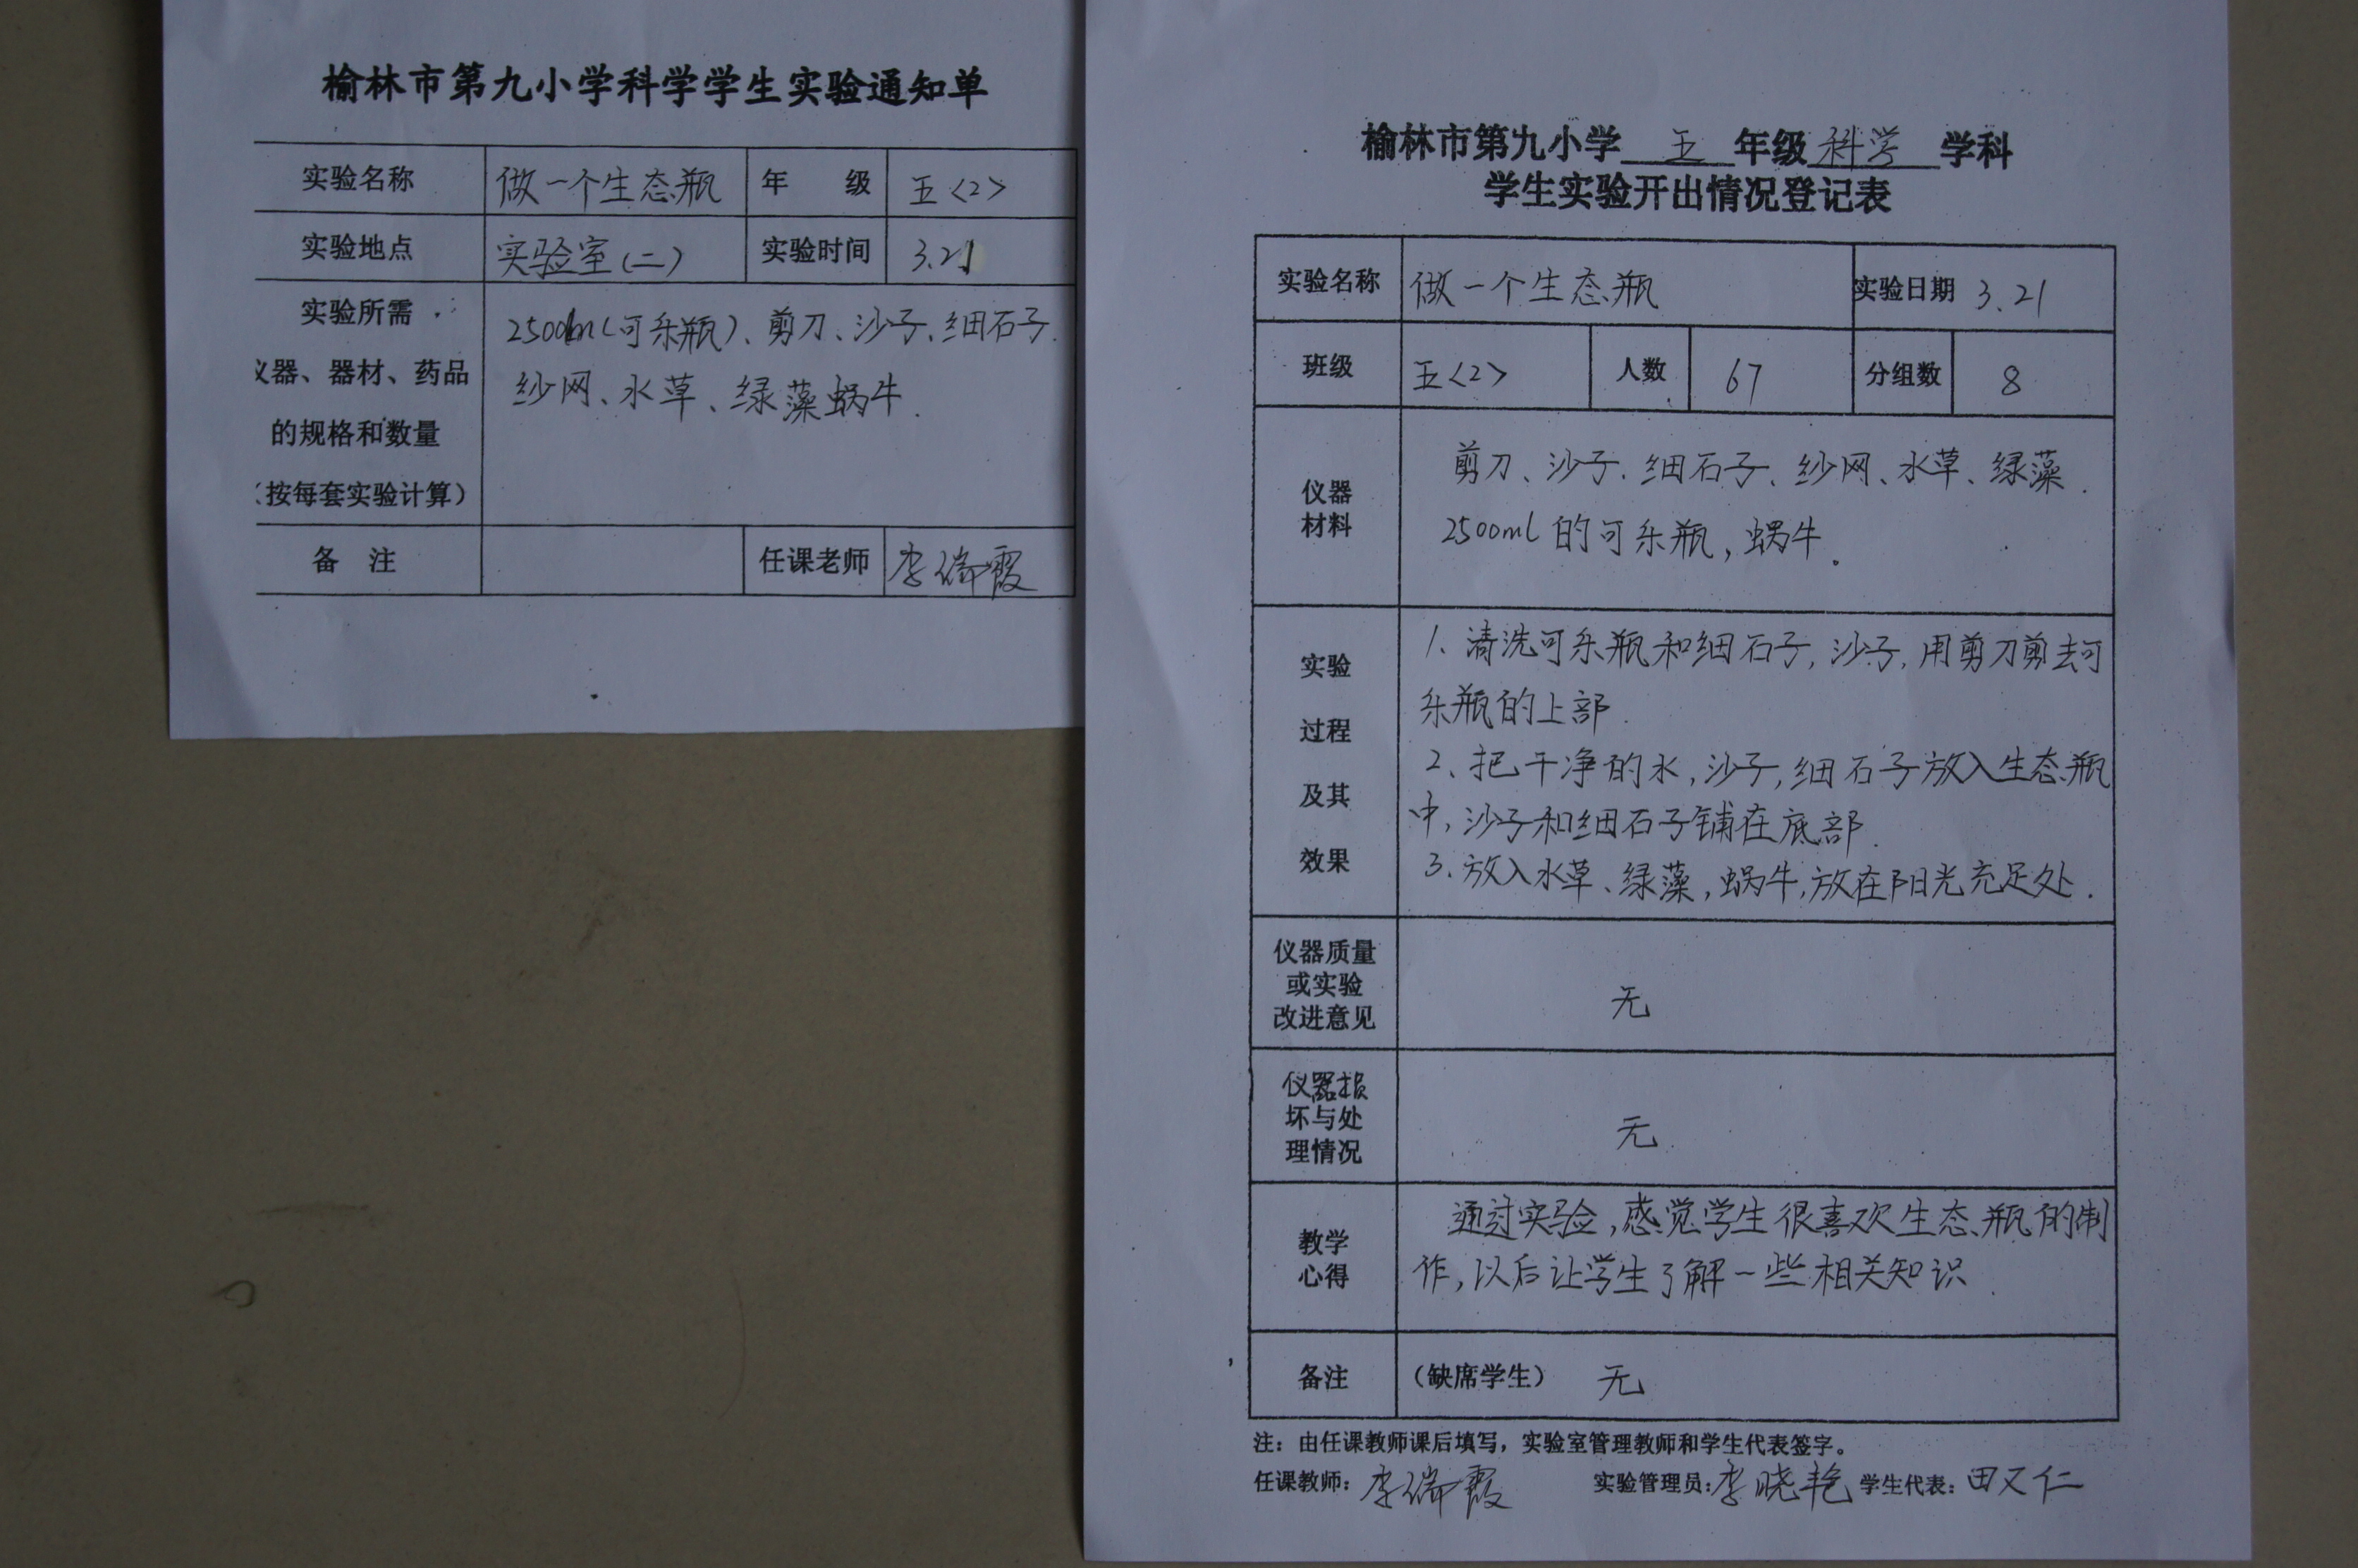 榆林市第九小学科学学生实验通知单
实验名称 做一个生态瓶 年 级 五<2>
实验地点 实验室(二) 实验时间 3.21
实验所需
仪器、器材、药品
的规格和数量
(按每套实验计算)
(可乐瓶)、剪刀、沙子、细石子.
纱网、水草、绿藻蜗牛.
备 注 任课老师 李瑞霞
榆林市第九小学 五 年级 科学 学科
学生实验开出情况登记表
实验名称 做一个生态瓶 实验日期 3.21
班级 五<2> 人数 67 分组数 8
仪器
材料
剪刀、沙子.细石子、纱网、水草、绿藻.
2500ml的可乐瓶,蜗牛.
实验
过程
及其
效果
1、清洗可乐瓶和细石子,沙子,用剪刀剪去可
乐瓶的上部.
2、把干净的水,沙子,细石子放入生态瓶
中,沙子和细石子铺在底部.
3、放入水草、绿藻,蜗牛,放在阳光充足处.
仪器质量
或实验
改进意见
无
仪器损
坏与处
理情况
无
教学
心得
通过实验,感觉学生很喜欢生态瓶的制
作,以后让学生了解一些相关知识.
备注 (缺席学生) 无
注：由任课教师课后填写，实验室管理教师和学生代表签字。
任课教师：李瑞霞 实验管理员：李晓艳 学生代表：田又仁